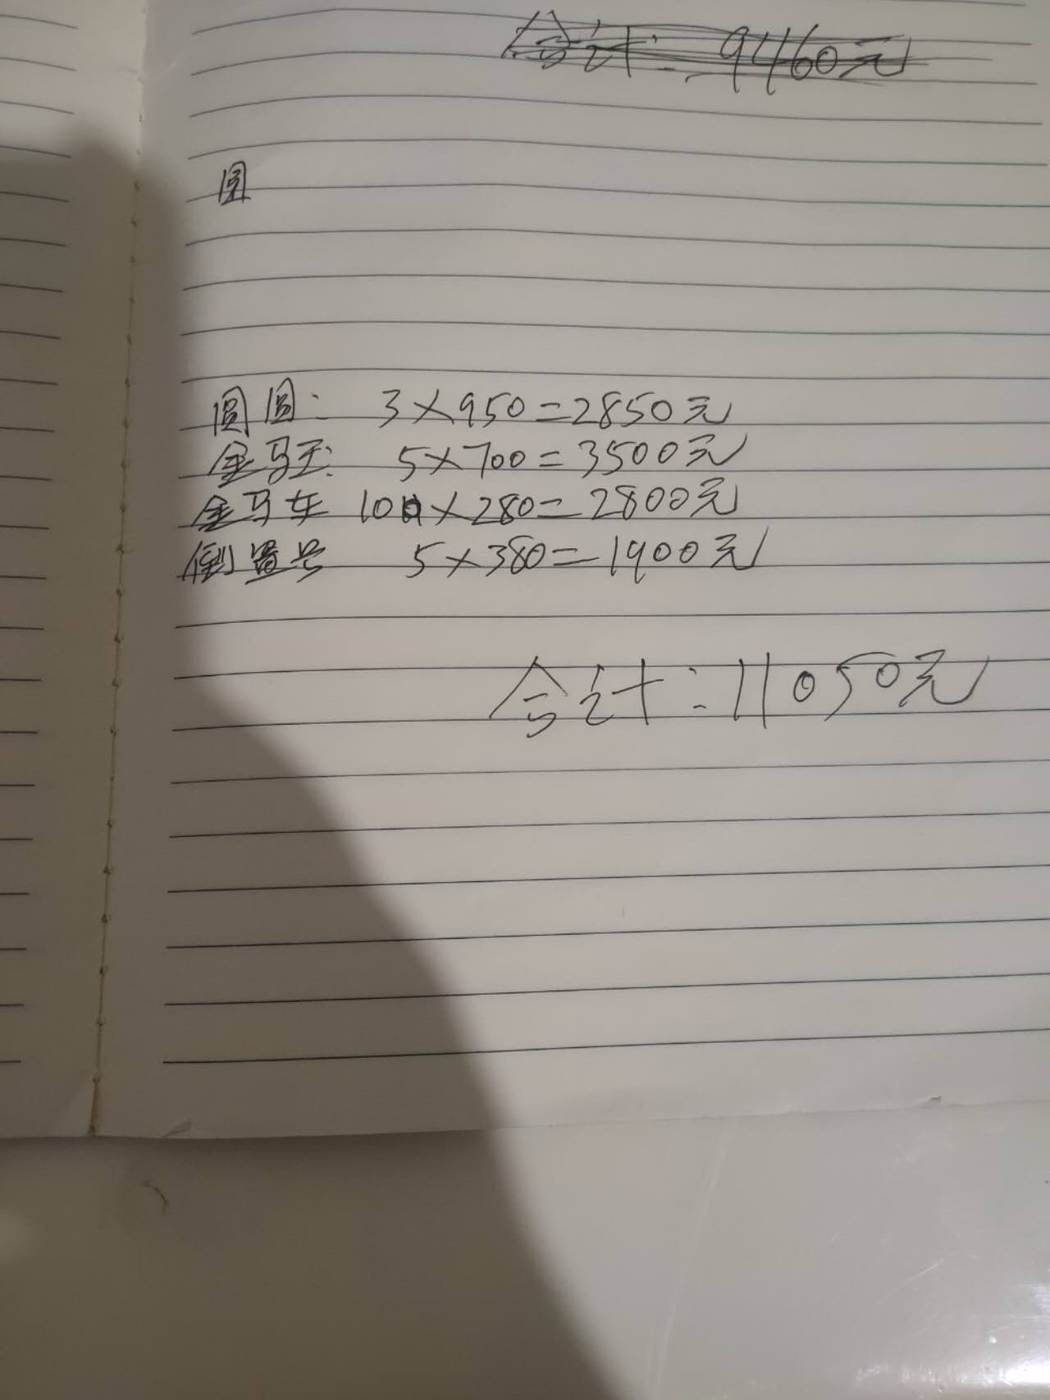 合计: 9460元
圆
圆圆: 3×950=2850元
金马王: 5×700=3500元
金马车 10×280=2800元
倒置号 5×380=1900元
合计: 11050元